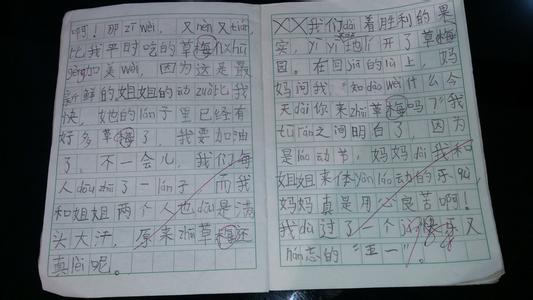 啊！那 zī wèi，又 nèn 又 tián，
比我平时吃的草梅似 hū
gèng加美 wèi，因为这是最
新鲜的姐姐的动 zuò比我
快，她的 lán子里已经有
好多草梅了，我要加油
了，不一会儿，我们每
人 dōu zhāi了一 lán子，而我
和姐姐两个人也 dōu是满
头大汗，原来 zhāi草梅还
真 lèi呢。
我们 dài着胜利的果
实，yī yī地 lí开了草梅
园。在回 jiā的 lù上，妈
妈问我：“知 dào wèi什么今
天 dài你来 zhāi草梅吗？”我
tū rán之间明白了，因为
是 láo动节，妈妈 dài我和
姐姐来体 yàn láo动的乐 qù，
妈妈真是用心良苦啊！
我 dù过了一个 快乐又
nán忘的“五一”。